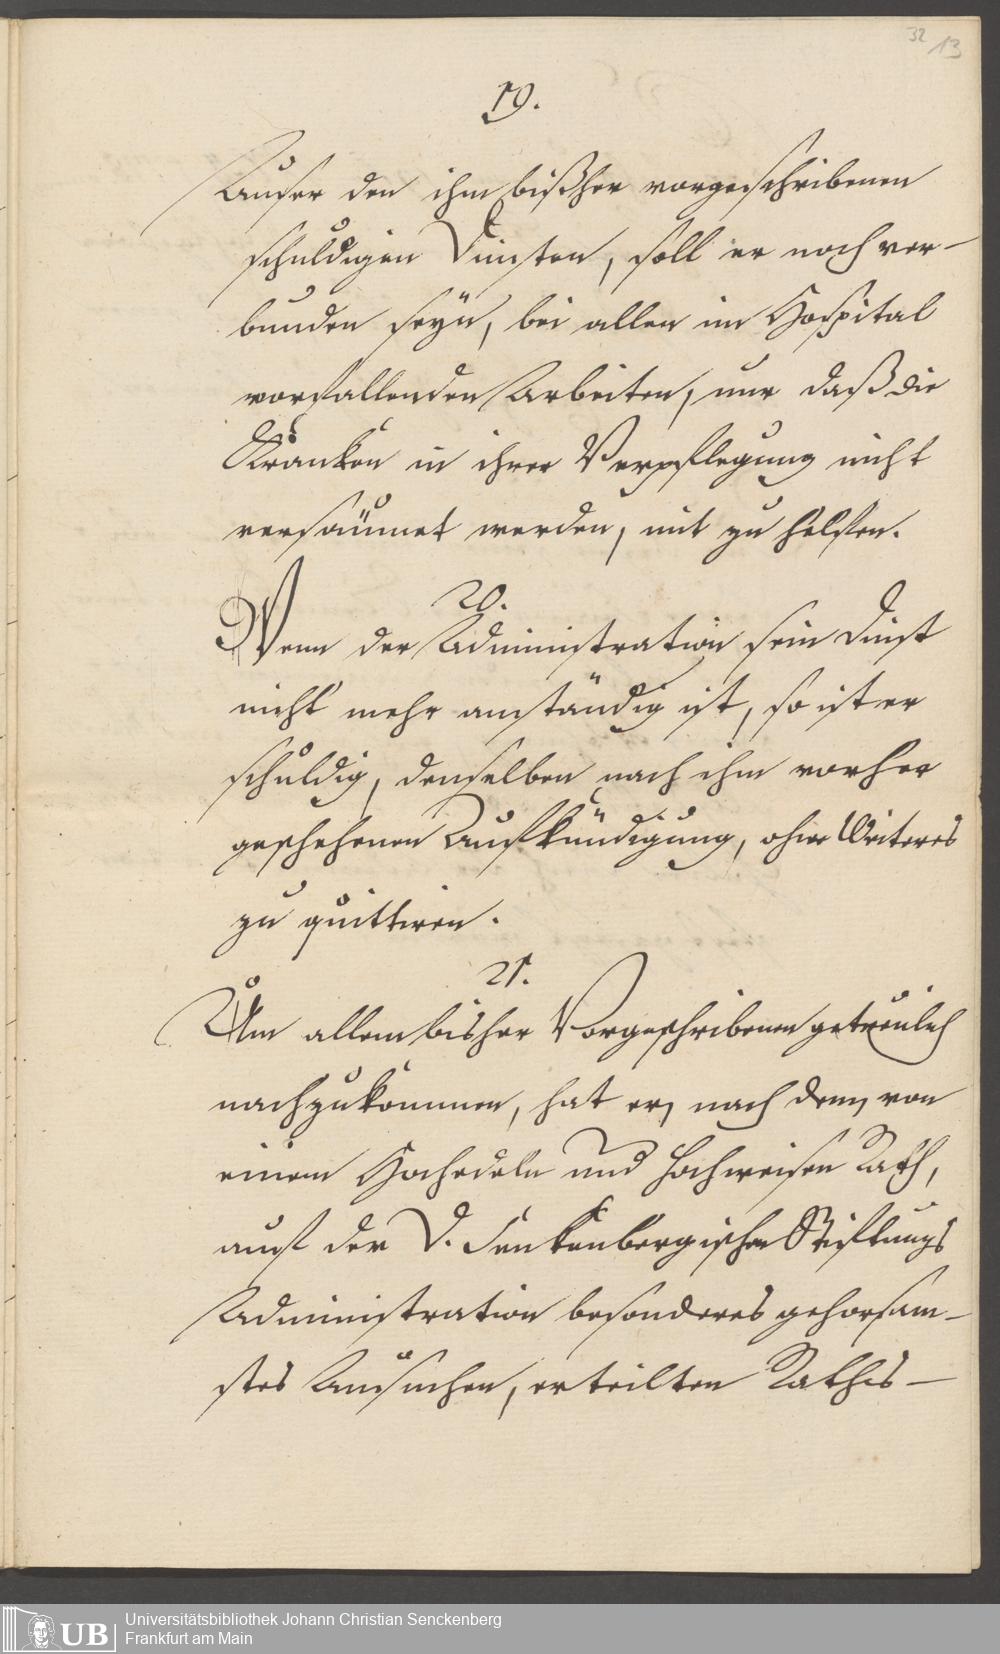 32 13
19.
Auser den ihm bißher vorgeschribenen
schuldigen Dinsten, soll er noch ver-
bunden seyn, bei allen im Hospital
vorfallenden Arbeiten, nur daß die
Kranken in ihrer Verpflegung nicht
versäumet werden, mit zu helffen.
20.
Wenn der Administration sein Dinst
nicht mehr anständig ist, so ist er
schuldig, denselben nach ihm vorher
geschehenen Aufkündigung, ohne Weiteres
zu quittiren.
21.
Um allem bisher Vorgeschribenen getreulich
nachzukommen, hat er, nach dem, von
einem Hochedeln und Hochweisen Rath,
auf der D. Senkenbergischen Stiftungs
Administration besonderes gehorsam-
stes Ansuchen, erteilten Rathes-
UB
Universitätsbibliothek Johann Christian Senckenberg
Frankfurt am Main